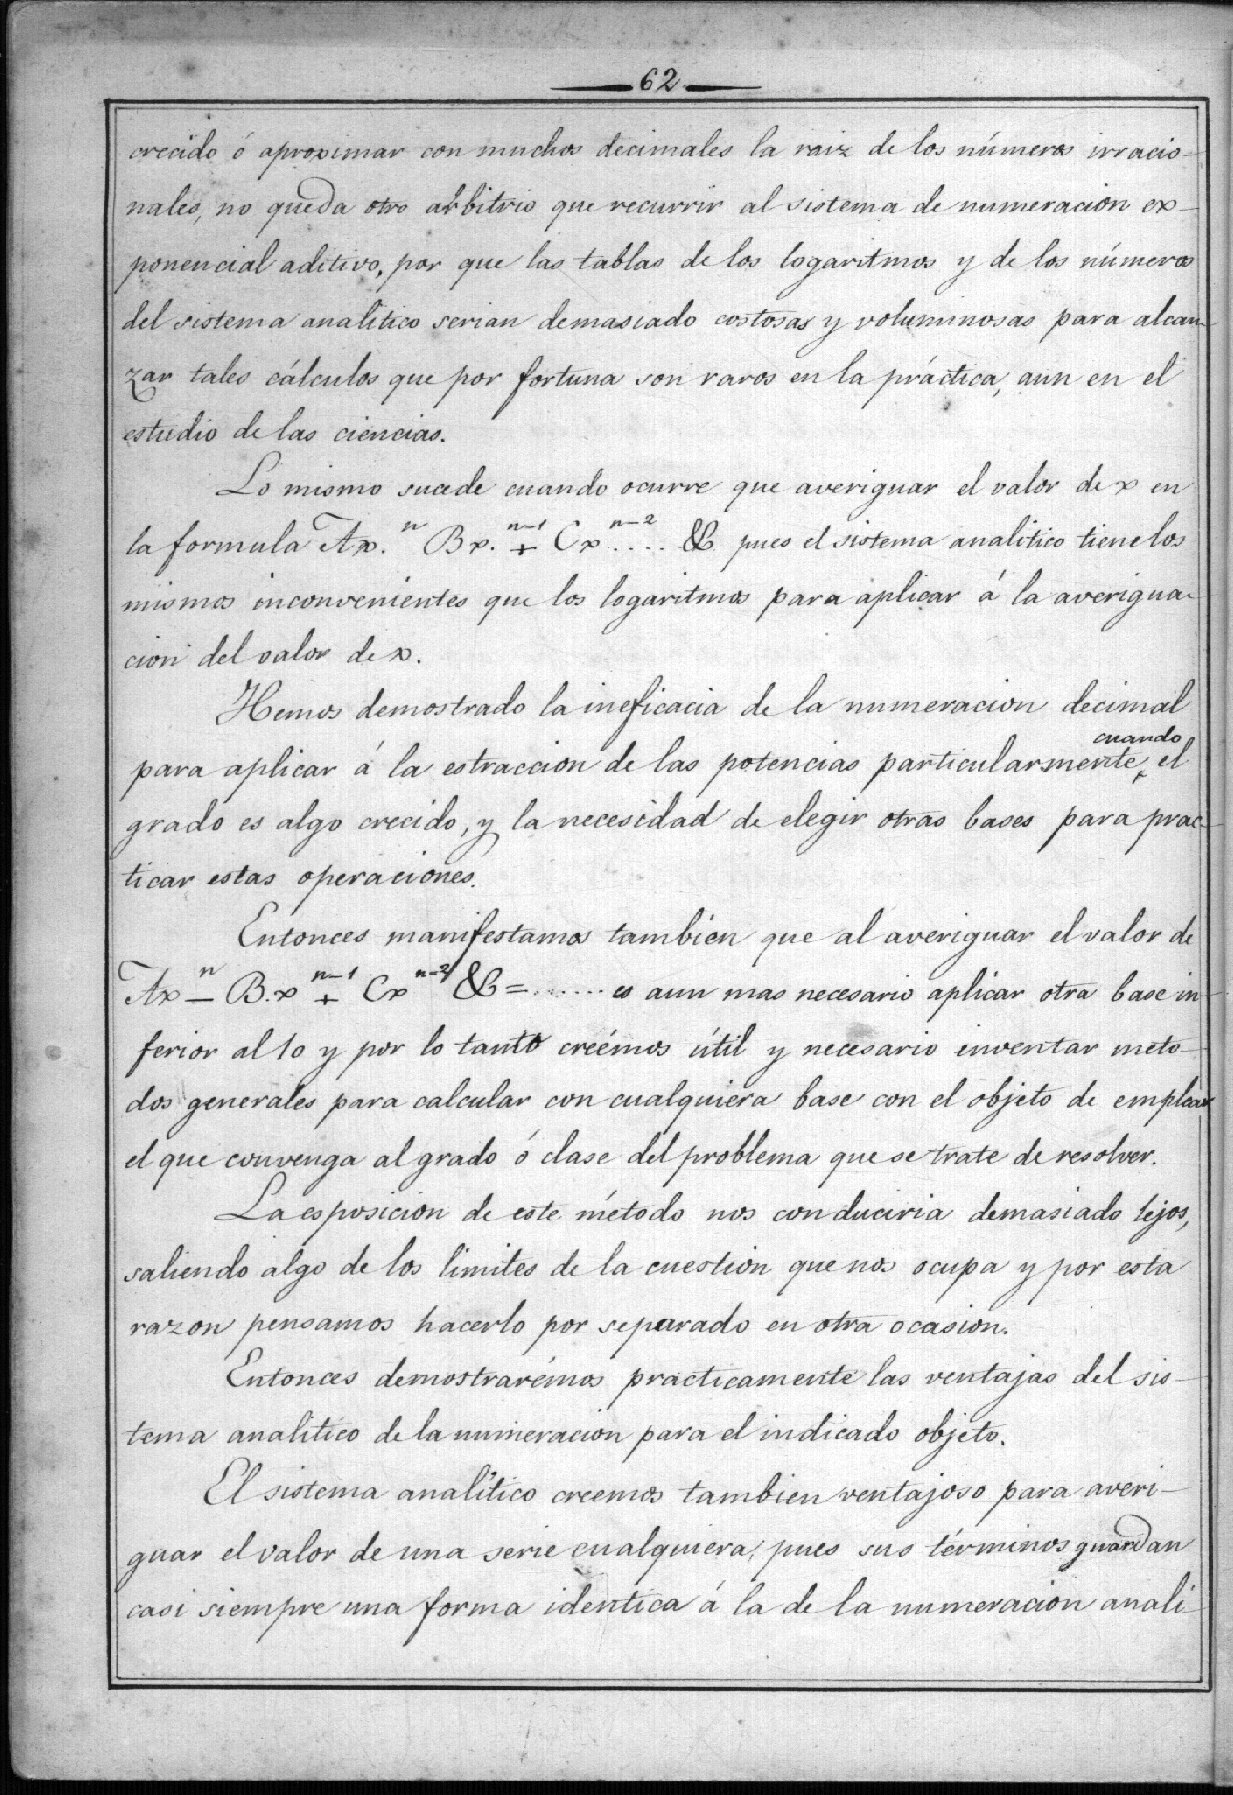 62
crecido ó aproximar con muchos decimales la raiz de los números irracio-
nales, no queda otro arbitrio que recurrir al sistema de numeracion ex-
ponencial aditivo, por que las tablas de los logaritmos y de los números
del sistema analitico serian demasiado costosas y voluminosas para alcan-
zar tales cálculos que por fortuna son raros en la práctica, aun en el
estudio de las ciencias.
Lo mismo sucede cuando ocurre que averiguar el valor de x en
la formula Ax.ⁿ Bx.ⁿ⁻¹ + Cxⁿ⁻² .... &. pues el sistema analitico tiene los
mismos inconvenientes que los logaritmos para aplicar á la averigua-
cion del valor de x.
Hemos demostrado la ineficacia de la numeracion decimal
para aplicar á la estraccion de las potencias particularmente cuando el
grado es algo crecido, y la necesidad de elegir otras bases para prac-
ticar estas operaciones.
Entonces manifestamos tambien que al averiguar el valor de
Axⁿ − B.xⁿ⁻¹ + Cxⁿ⁻² & = ....... es aun mas necesario aplicar otra base in-
ferior al 10 y por lo tanto creémos útil y necesario inventar meto-
dos generales para calcular con cualquiera base con el objeto de emplear
el que convenga al grado ó clase del problema que se trate de resolver.
La esposicion de este método nos conduciria demasiado lejos,
saliendo algo de los limites de la cuestion que nos ocupa y por esta
razon pensamos hacerlo por separado en otra ocasion.
Entonces demostrarémos practicamente las ventajas del sis-
tema analitico de la numeracion para el indicado objeto.
El sistema analitico creemos tambien ventajoso para averi-
guar el valor de una serie cualquiera, pues sus términos guardan
casi siempre una forma identica á la de la numeracion anali-